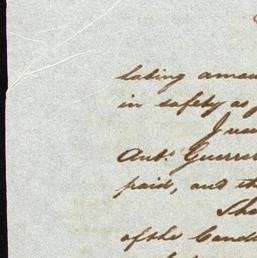 lating amou
in safety as
Ant. Guerre
paid, and th
She
of the Cande